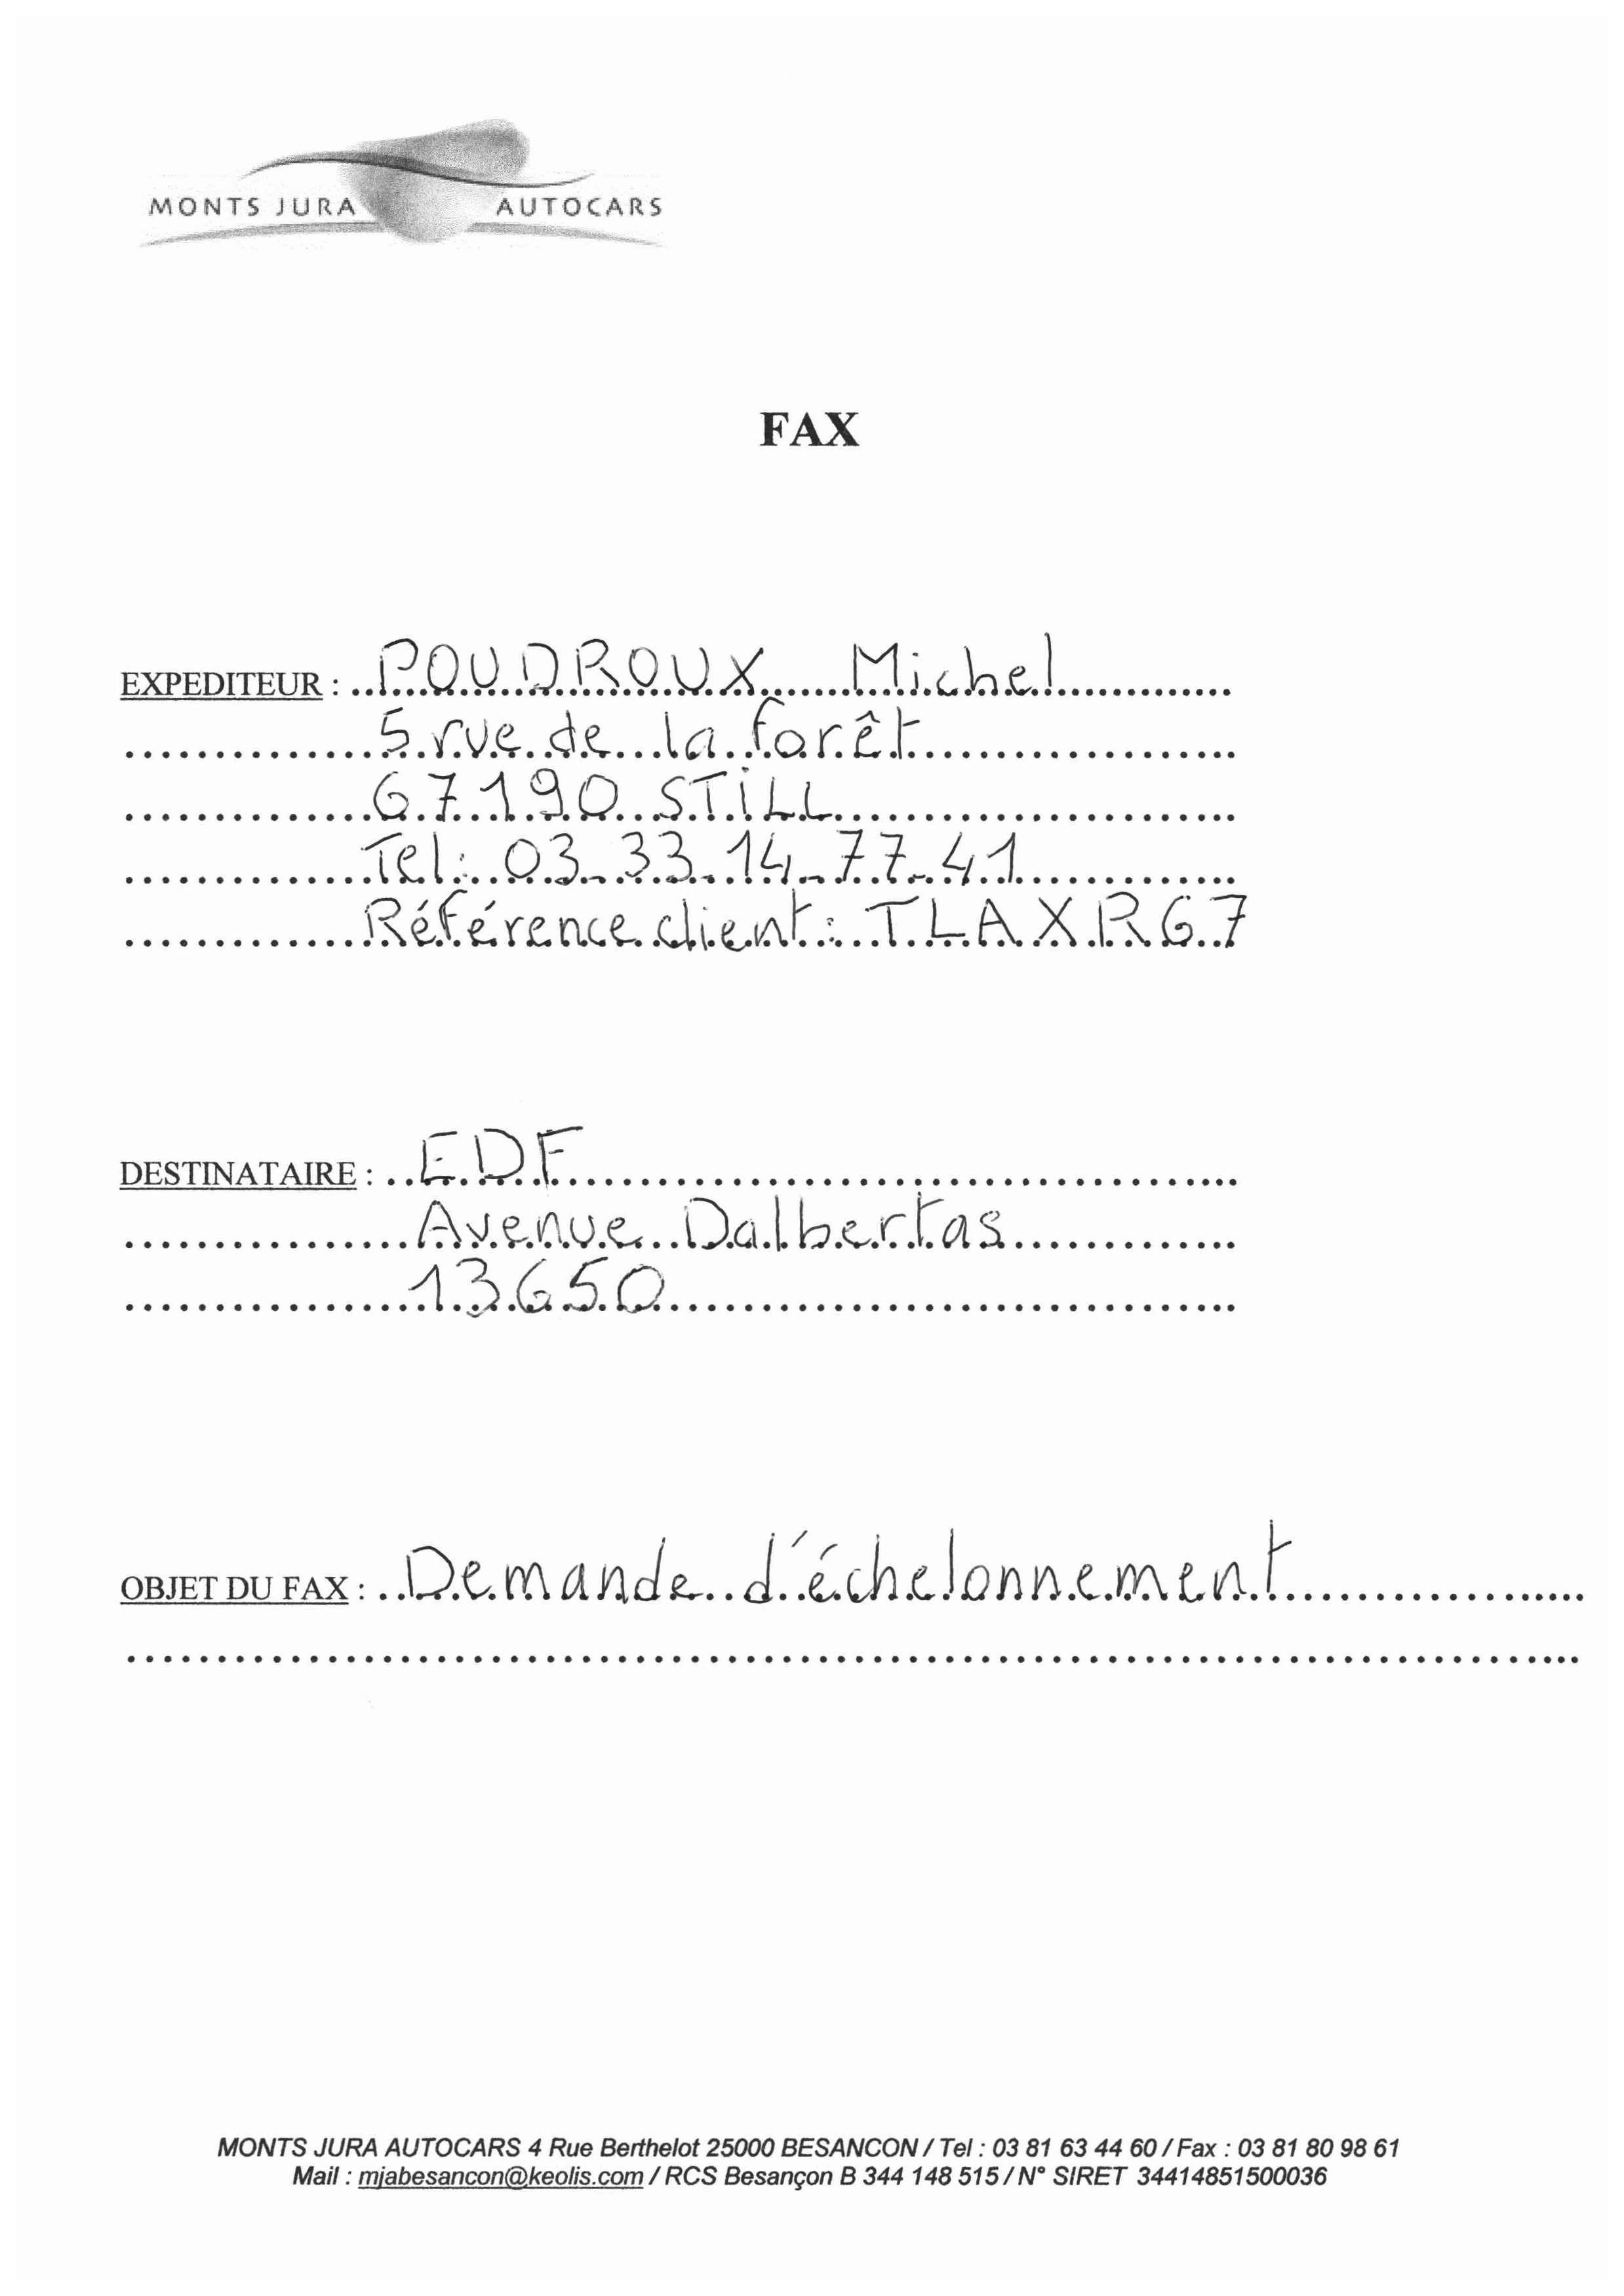 MONTS JURA AUTOCARS
FAX
EXPEDITEUR : POUDROUX Michel
5 rue de la forêt
67190 STiLL
Tel : 03_33_14_77_41
Référence client : TLAXRG7
DESTINATAIRE : EDF
Avenue Dalbertas
13650
OBJET DU FAX : Demande d'échelonnement
MONTS JURA AUTOCARS 4 Rue Berthelot 25000 BESANCON / Tel : 03 81 63 44 60 / Fax : 03 81 80 98 61
Mail : mjabesancon@keolis.com / RCS Besançon B 344 148 515 / N° SIRET 34414851500036